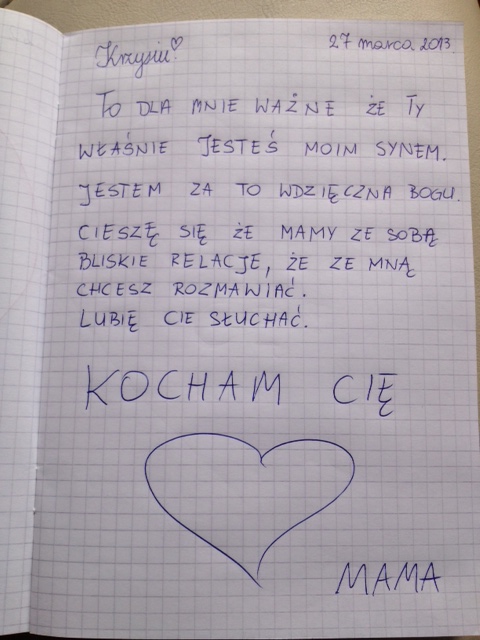 Krzysiu!
27 marca 2013
TO DLA MNIE WAŻNE ŻE TY
WŁAŚNIE JESTEŚ MOIM SYNEM.
JESTEM ZA TO WDZIĘCZNA BOGU.
CIESZĘ SIĘ ŻE MAMY ZE SOBĄ
BLISKIE RELACJE, ŻE ZE MNĄ
CHCESZ ROZMAWIAĆ.
LUBIĘ CIE SŁUCHAĆ.
KOCHAM CIĘ
MAMA